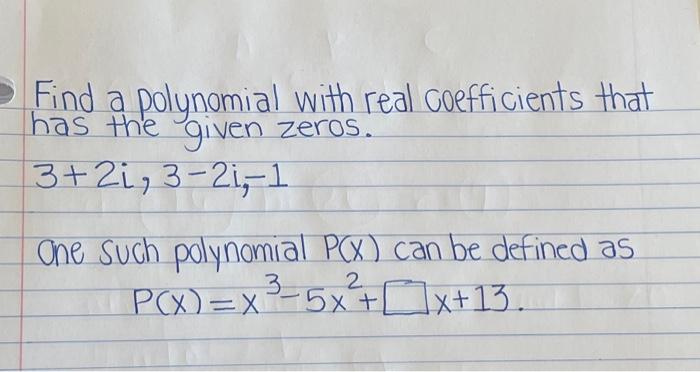 Find a polynomial with real coefficients that
has the given zeros.
3+2i, 3-2i,-1
One such polynomial P(X) can be defined as
P(X)=x³-5x²+□x+13.